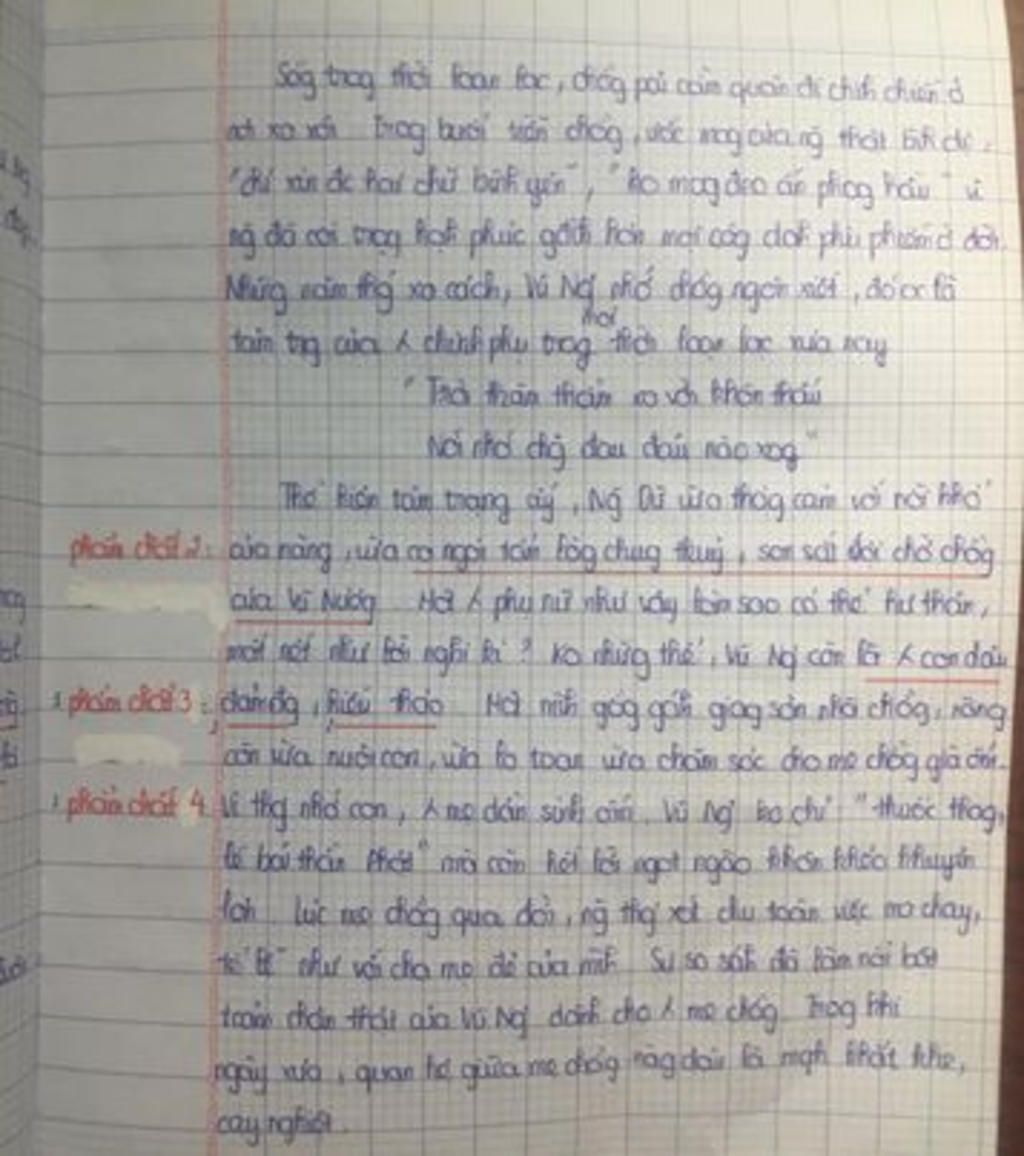 Sốg trog thời loạn lạc, chồg pải cầm quân đi chih chiến ở
nơi xa xôi. Trog buổi tiễn chồg, ước mog của ng thật bìh dị:
"chỉ xin đc hai chữ bìh yên", "ko mog đeo ấn phog hầu" vì
ng đã coi trọg hạh phúc gđìh hơn mọi côg dah phù phiếm ở đời.
Những năm thg xa cách, Vũ Ng nhớ chồg ngơn xiết, đó cx là
tâm trg của λ chinh phụ trog thời loạn lạc xưa nay
"Trời thăm thẳm xa vời khôn thấu
Nỗi nhớ chàg đau đáu nào xog"
Thể hiện tâm trạng ấy, Ng Dữ vừa thôg cảm với nỗi khổ
phẩm chất 2: của nàng, vừa ca ngợi tấm lòg chug thuỷ, son sắt đợi chờ chồg
của Vũ Nươg. Một λ phụ nữ như vậy làm sao có thể hư thân,
mất nết như lời nghi kị? Ko nhữg thế, Vũ Ng còn là λ con dâu
phẩm chất 3: đảm đg, hiếu thảo. Một mìh gág gáh giag sơn nhà chồg, nàng
còn vừa nuôi con, vừa lo toan vừa chăm sóc cho mẹ chồg già ốm.
phẩm chất 4 Vì thg nhớ con, λ mẹ dần sinh ốm. Vũ Ng ko chỉ "thuốc thag,
lễ bái thần Phật" mà còn hết lời ngọt ngào khôn khéo khuyên
lơn. Lúc mẹ chồg qua đời, ng thg xót chu toàn việc ma chay,
tế lễ như với cha mẹ đẻ của mìh. Sự so sáh đã làm nổi bật
tìnhcảm chân thật của Vũ Ng dành cho λ mẹ chồg. Trog khi
ngày xưa, quan hệ giữa mẹ chồg nàg dâu là mqh khắt khe,
cay nghiệt.